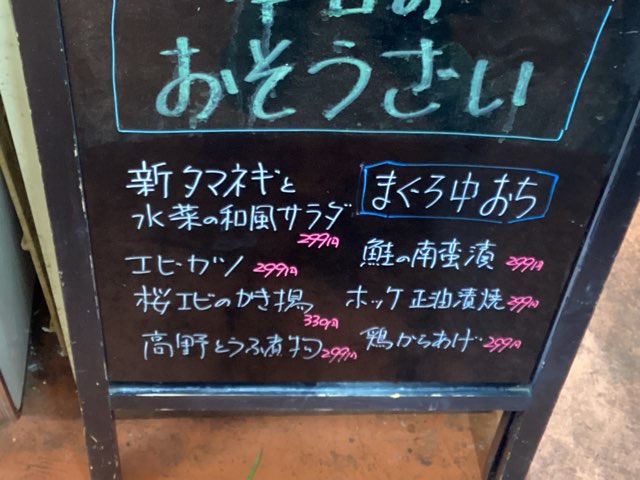 本日の
おそうざい
新タマネギと
水菜の和風サラダ
299円
エビカツ 299円
桜エビのかき揚
330円
高野とうふ煮物 299円
まぐろ中おち
鮭の南蛮漬 299円
ホッケ正油漬焼 299円
鶏からあげ 299円